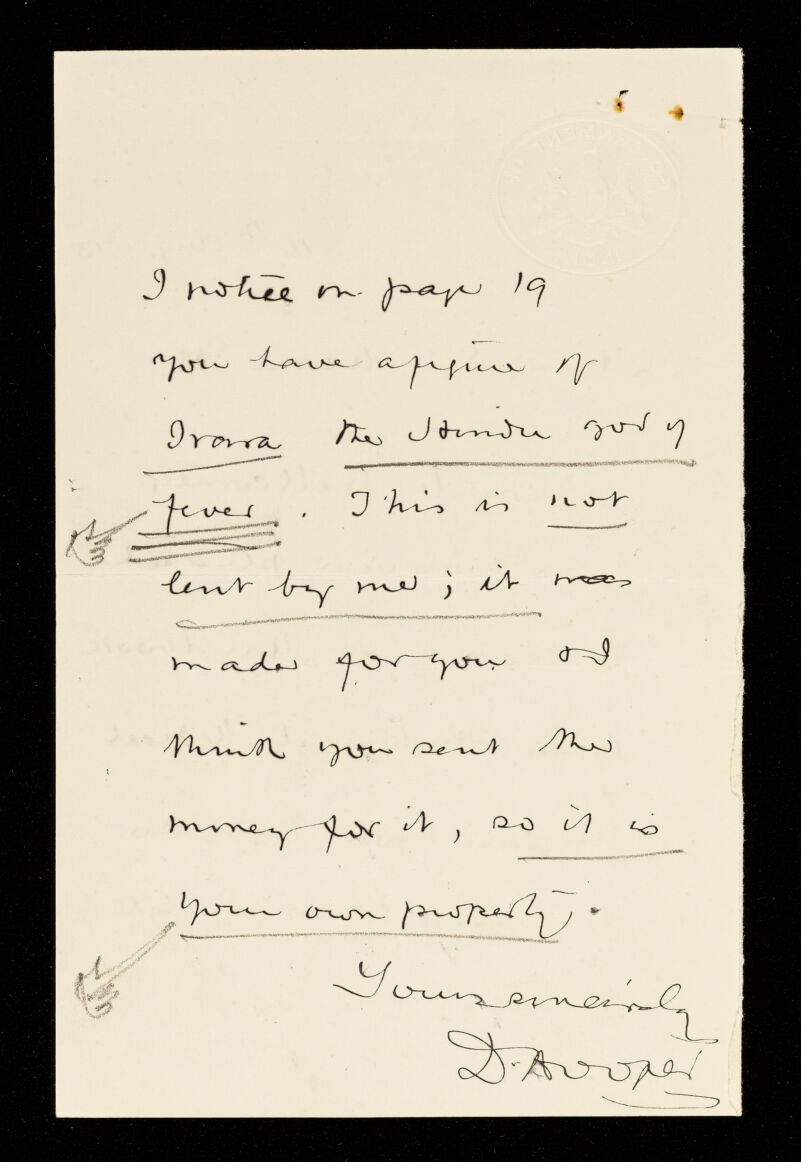 I notice on page 19
you have a figure of
Ivara the Hindu god of
fever. This is not
lent by me; it was
made for you & I
think you sent the
money for it, so it is
your own property.
Yours sincerely
D. Hooper